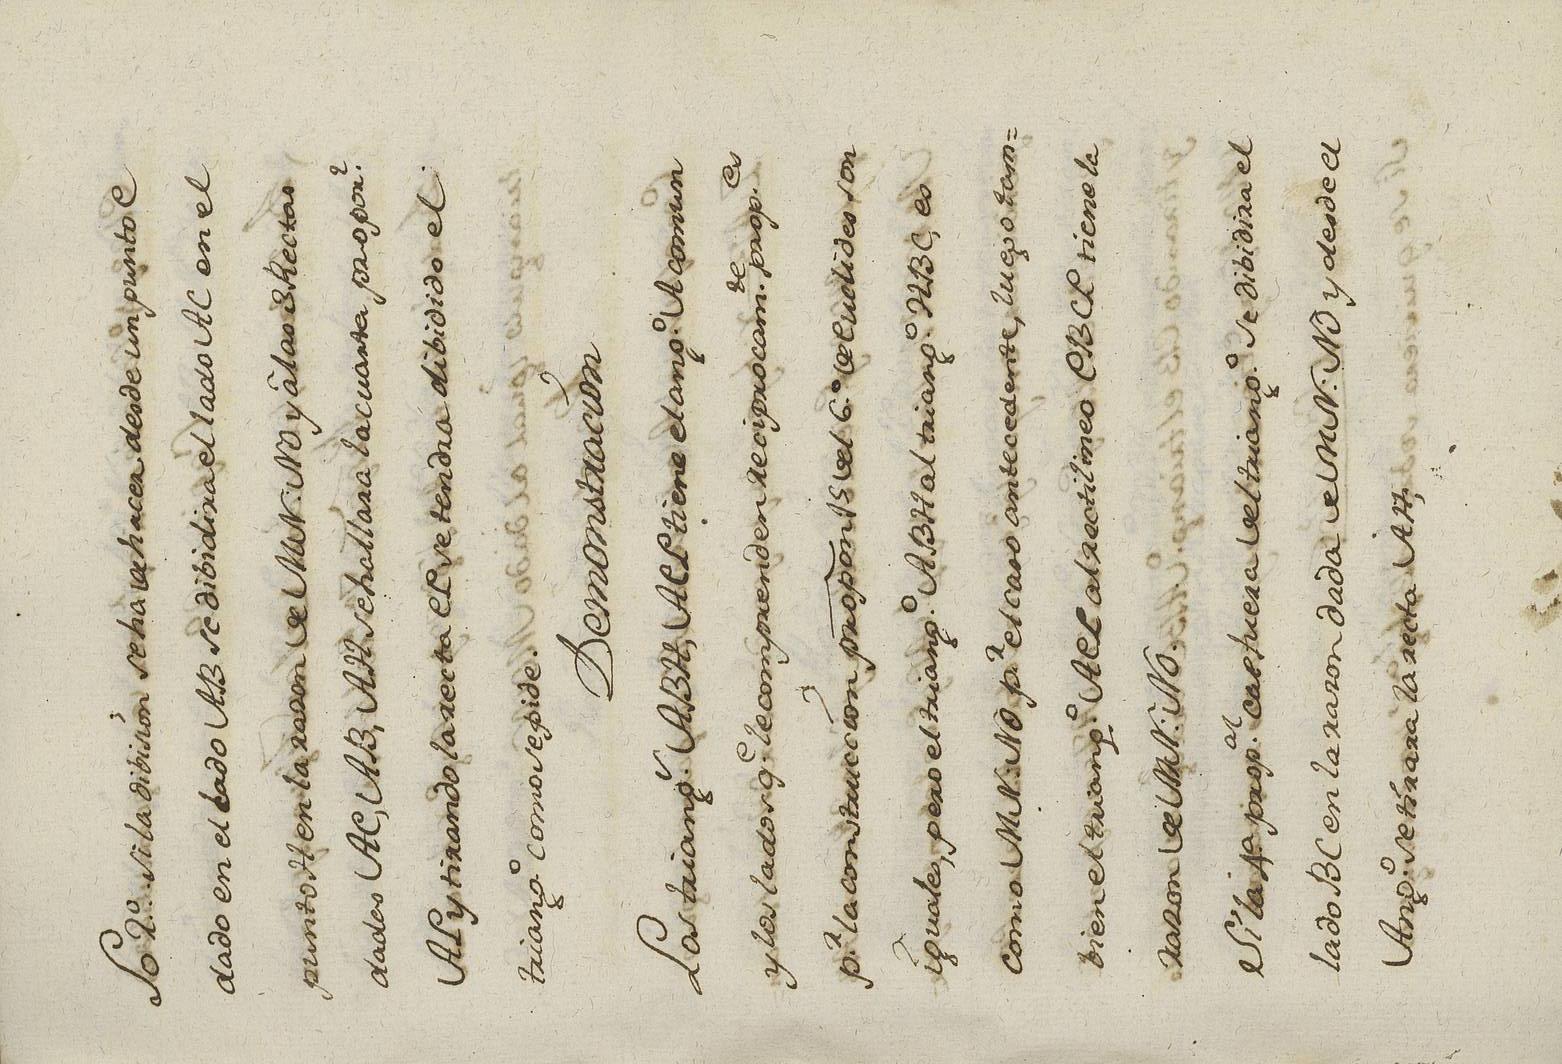 Lo 2º. Si la dibision se ha de hacer desde un punto C
dado en el lado AB se dibidira el lado AC en el
punto H en la razon de MN: NO y â las 3 Rectas
dadas AC, AB, AH se hallara la cuarta propor.ª
AL y tirando la recta CL se tendra dibidido el
triangº como se pide.
Demonstracion
Los triangº.s ABH, ACL tiene el angº. A comun
y los lados q.e le comprenden reciprocam.te prop.es
p.r la construccion propon 15 del 6.º de Euclides son
iguales, pero el triangº. ABH al triangº. HBC, es
como MN: NO p.r el caso antecedente, luego tam=
bien el triangº. ACL al rectilineo CBCL tiene la
razon de MN: NO.
Si la prop.al cae fuera del triangº. se dibidira el
lado BC en la razon dada de MN: NO y desde el
Angº. se tirara la recta AH,